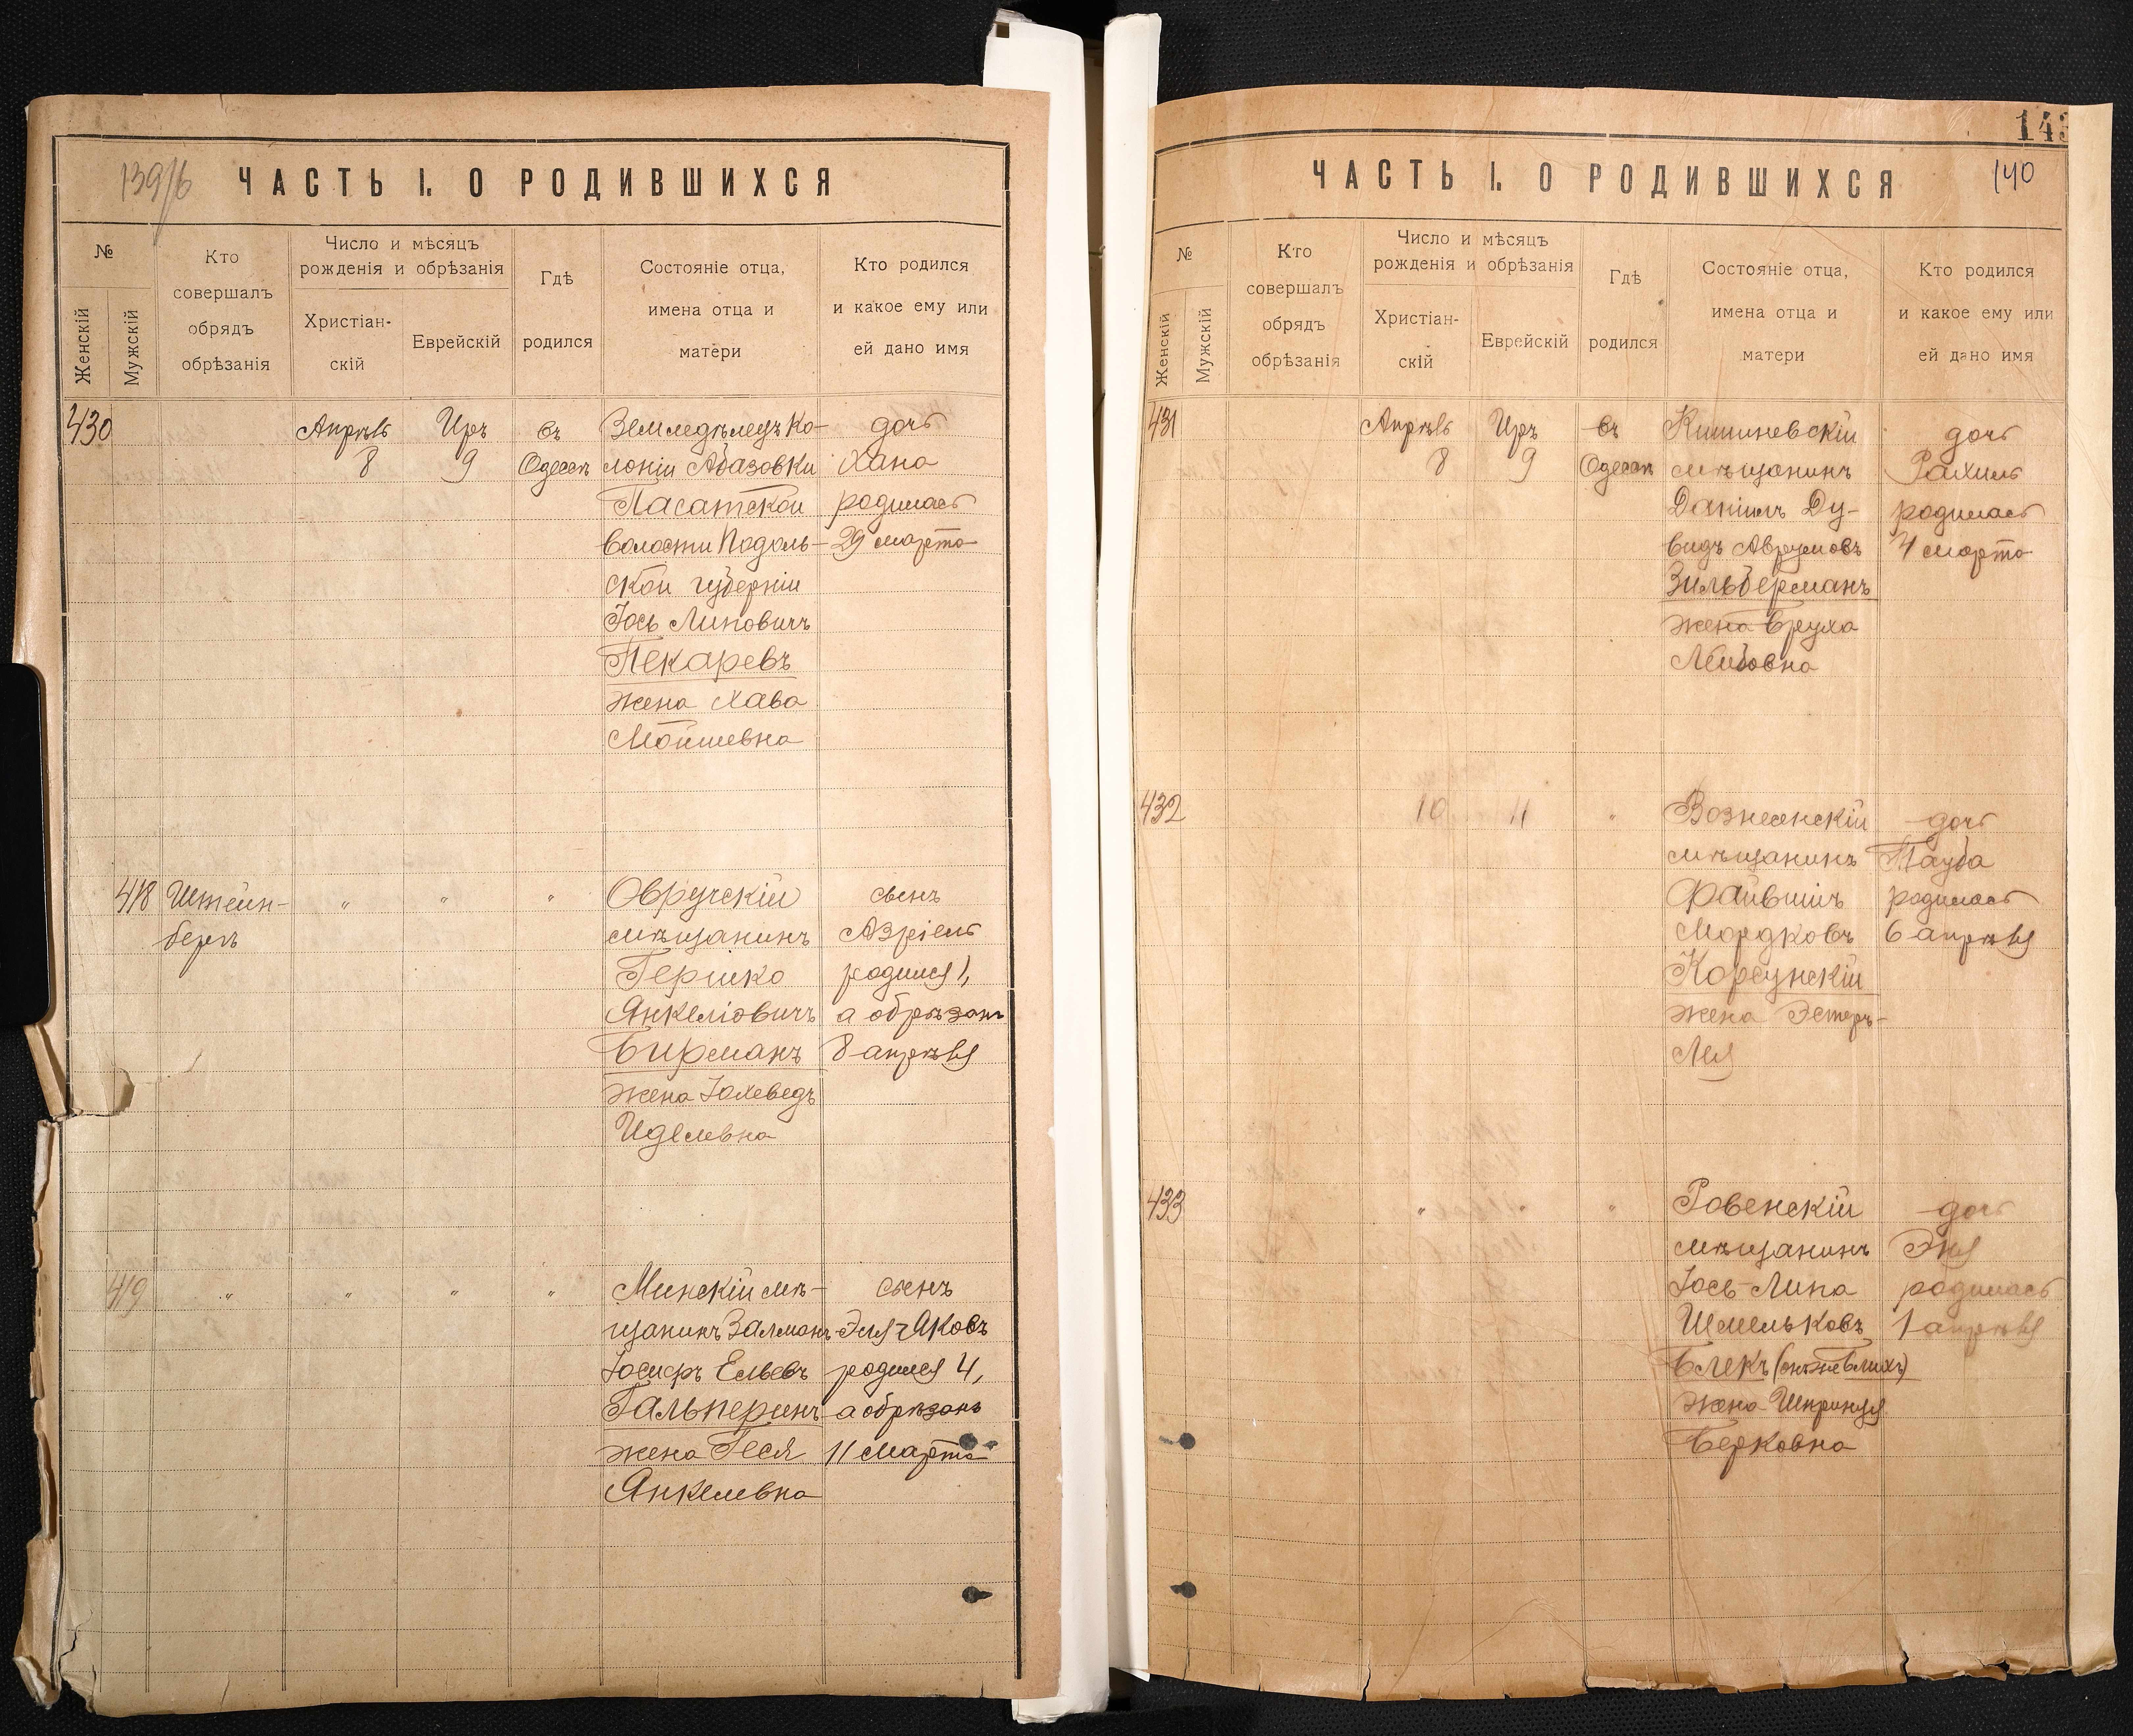 139/б
ЧАСТЬ I. О РОДИВШИХСЯ
№
Женскій
Мужскій
Кто
совершалъ
обрядъ
обрѣзанія
Число и мѣсяцъ
рожденія и обрѣзанія
Христіан-
скій
Еврейскій
Гдѣ
родился
Состояніе отца,
имена отца и
матери
Кто родился
и какое ему или
ей дано имя
430
Апрѣль
8
Иръ
9
въ
Одессѣ
Земледѣлецъ ко-
лоніи Абазовки
Пасатской
волости Подоль-
ской губерніи
Іось Липовичъ
Пекаревъ
жена Хава
Мойшевна
дочь
Хана
родилась
29 марта
418
Штейн-
бергъ
"
"
"
Овручскій
мѣщанинъ
Гершко
Янкеліовичъ
Бирманъ
жена Іохеведъ
Иделевна
сынъ
Азріель
родился 1,
а обрѣзанъ
8 апрѣля
419
"
"
"
"
Минскій мѣ-
щанинъ Залманъ-
Іосифъ Ельевъ
Гальперинъ
жена Геся
Янкелевна
сынъ
Эля-Яковъ
родился 4,
а обрѣзанъ
11 марта
143
140
ЧАСТЬ I. О РОДИВШИХСЯ
№
Женскій
Мужскій
Кто
совершалъ
обрядъ
обрѣзанія
Число и мѣсяцъ
рожденія и обрѣзанія
Христіан-
скій
Еврейскій
Гдѣ
родился
Состояніе отца,
имена отца и
матери
Кто родился
и какое ему или
ей дано имя
431
Апрѣль
8
Иръ
9
въ
Одессѣ
Кишиневскій
мѣщанинъ
Даніилъ Ду-
видъ Аврумовъ
Зильберманъ
жена Бруха
Лейбовна
дочь
Рахиль
родилась
4 марта
432
10
11
"
Вознесенскій
мѣщанинъ
Файвишъ
Мордковъ
Корсунскій
жена Эстеръ-
Лея
дочь
Тауба
родилась
6 апрѣля
433
"
"
"
Ровенскій
мѣщанинъ
Іось-Липа
Шмельковъ
Блекъ (онъ же Блихъ)
жена Шпринця
Берковна
дочь
Эня
родилась
1 апрѣля